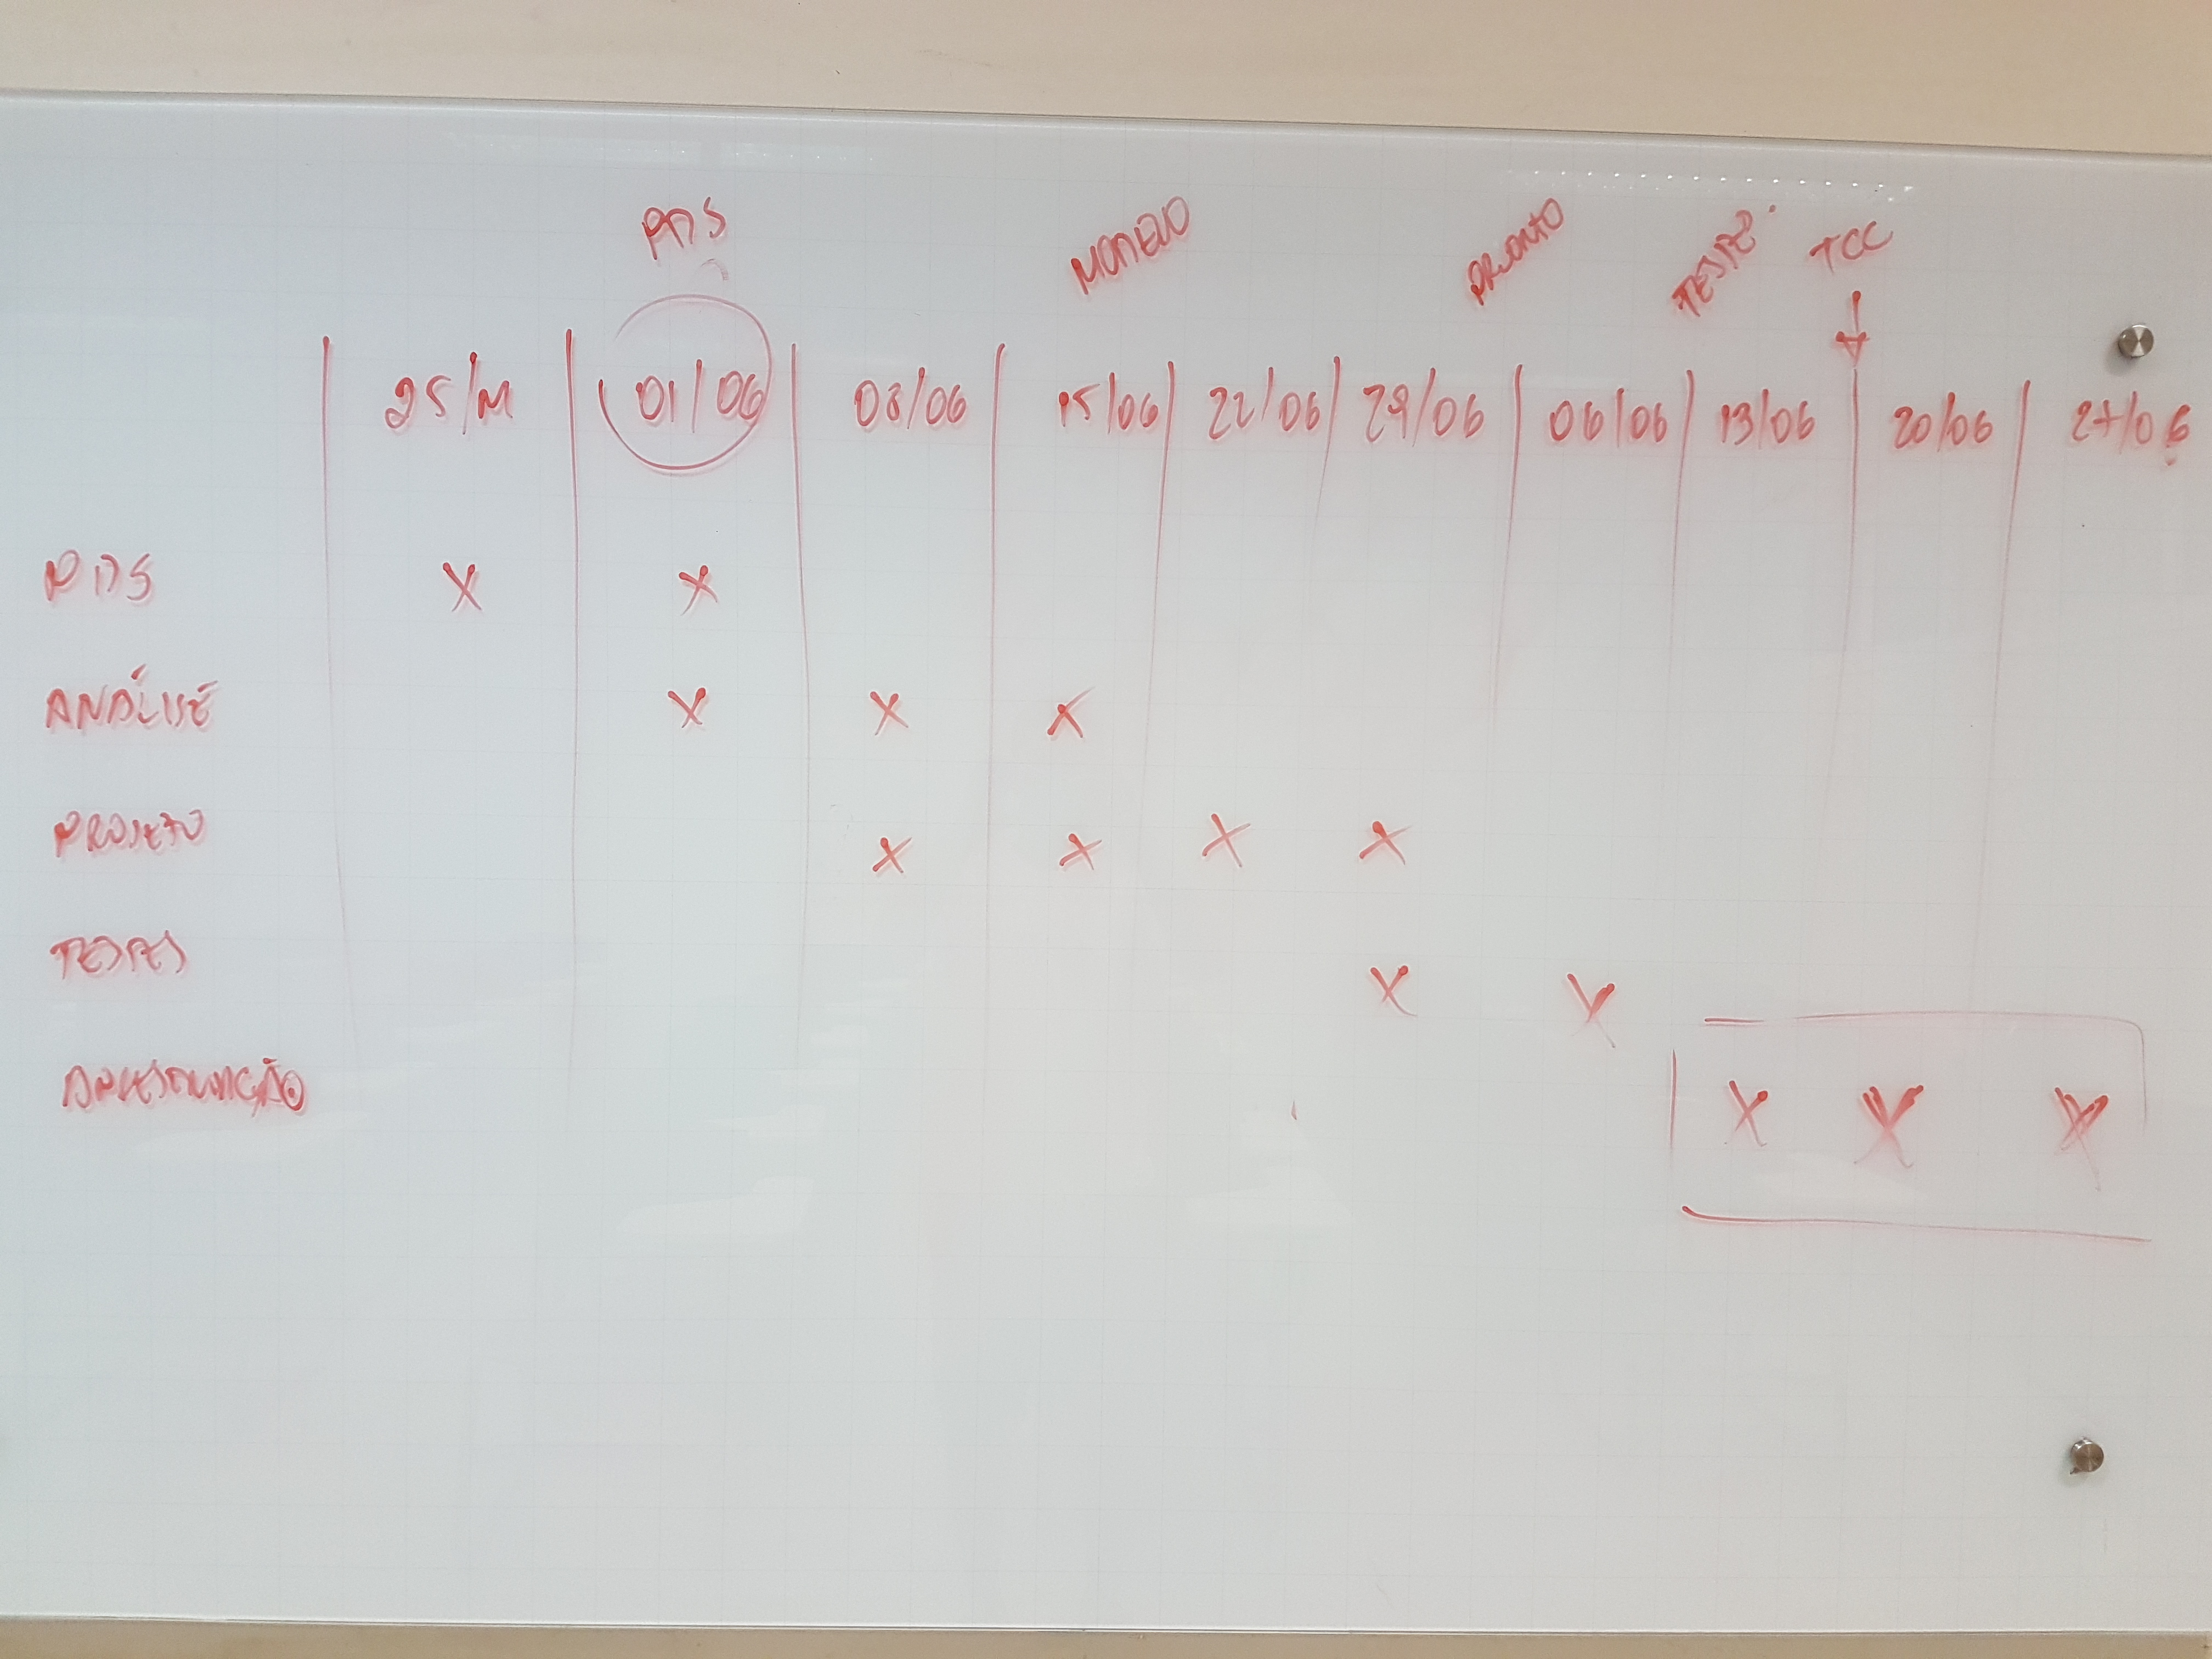 PDS MODELO PRONTO TESTE TCC
25/M 01/06 08/06 15/06 22/06 29/06 06/06 13/06 20/06 27/06
PDS X X
ANÁLISE X X X
PROJETO X X X X
TESTES X X
APRESENTAÇÃO X X X